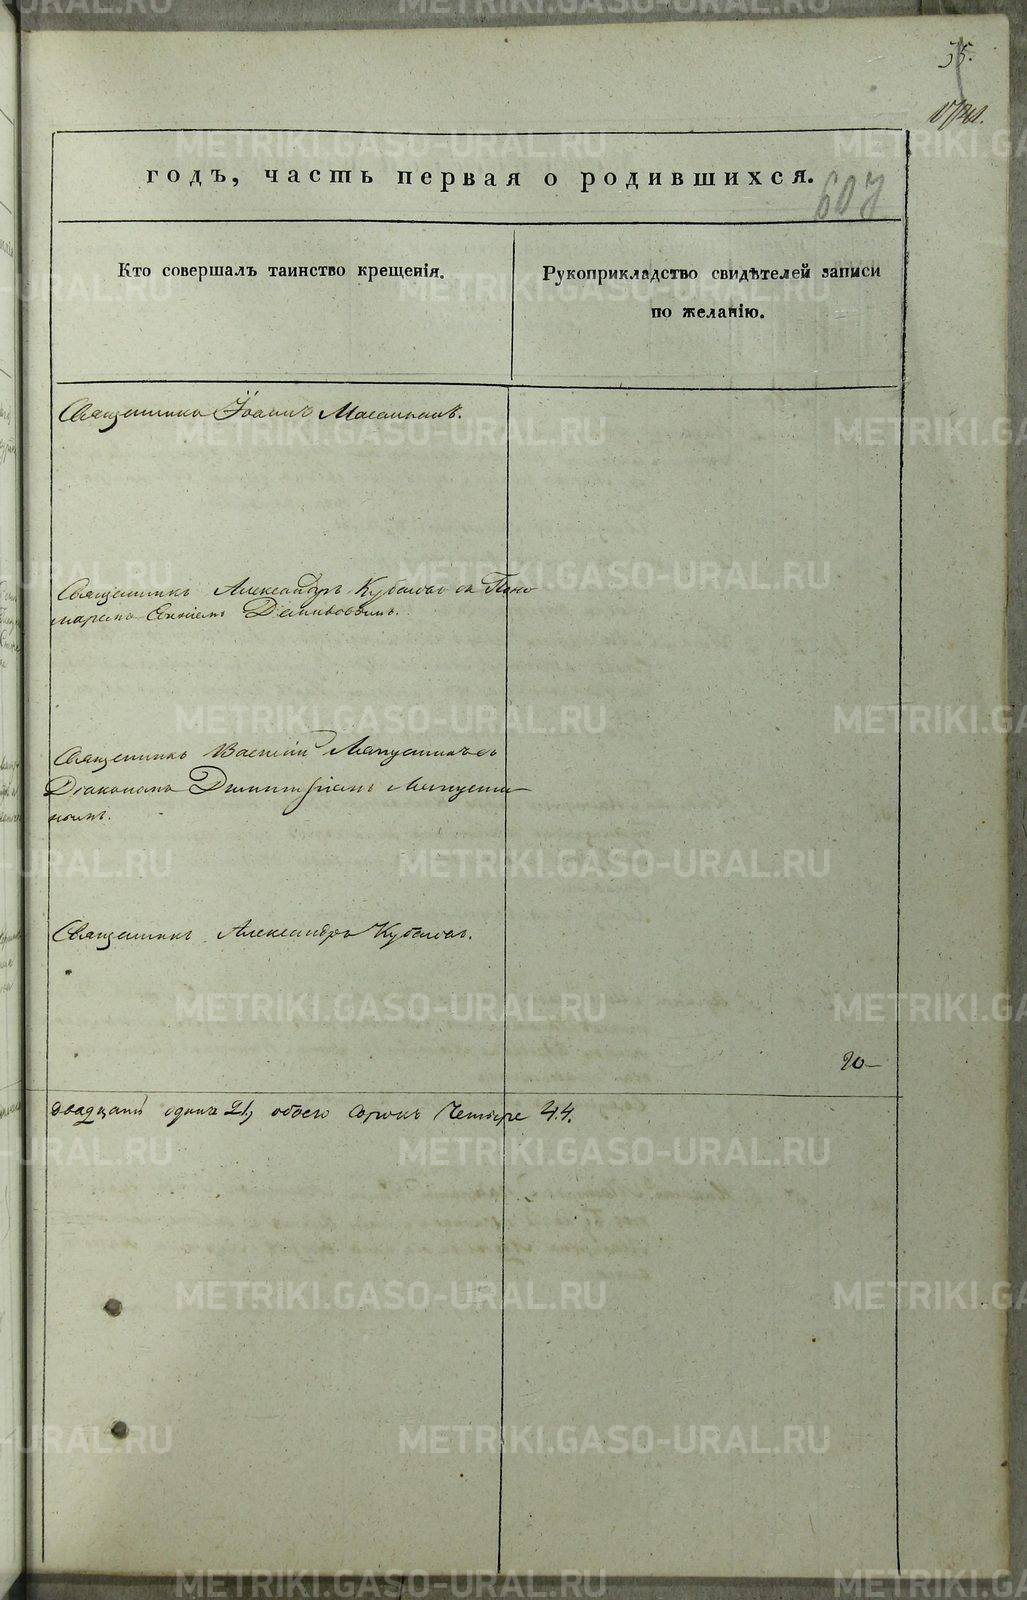 35.
годъ, часть первая о родившихся.
607
Кто совершалъ таинство крещенія.
Рукоприкладство свидѣтелей записи
по желанію.
Священникъ Іоаннъ
Священникъ Александръ Кубасовъ съ Поно
маремъ
Священникъ Василій Мапустинъ съ
Діакономъ Димитріемъ Мапусти
нымъ.
Священникъ Александръ Кубасовъ.
20
двадцать одинъ 21, обоего сорокъ четыре 44.
METRIKI.GASO-URAL.RU